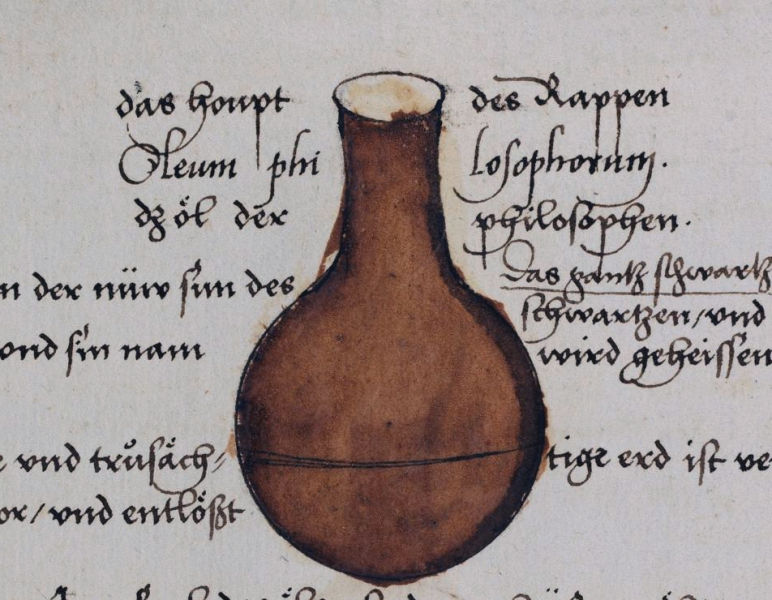 das houpt des Rappen
Oleum philosophorum.
dz öl der philosophen.
n der nüw sün des das gantz schwartz
schwartzen/vnd
vnd sin nam wird geheissen
e vnd trůsäch-tige erd ist ve
or/vnd entlößt